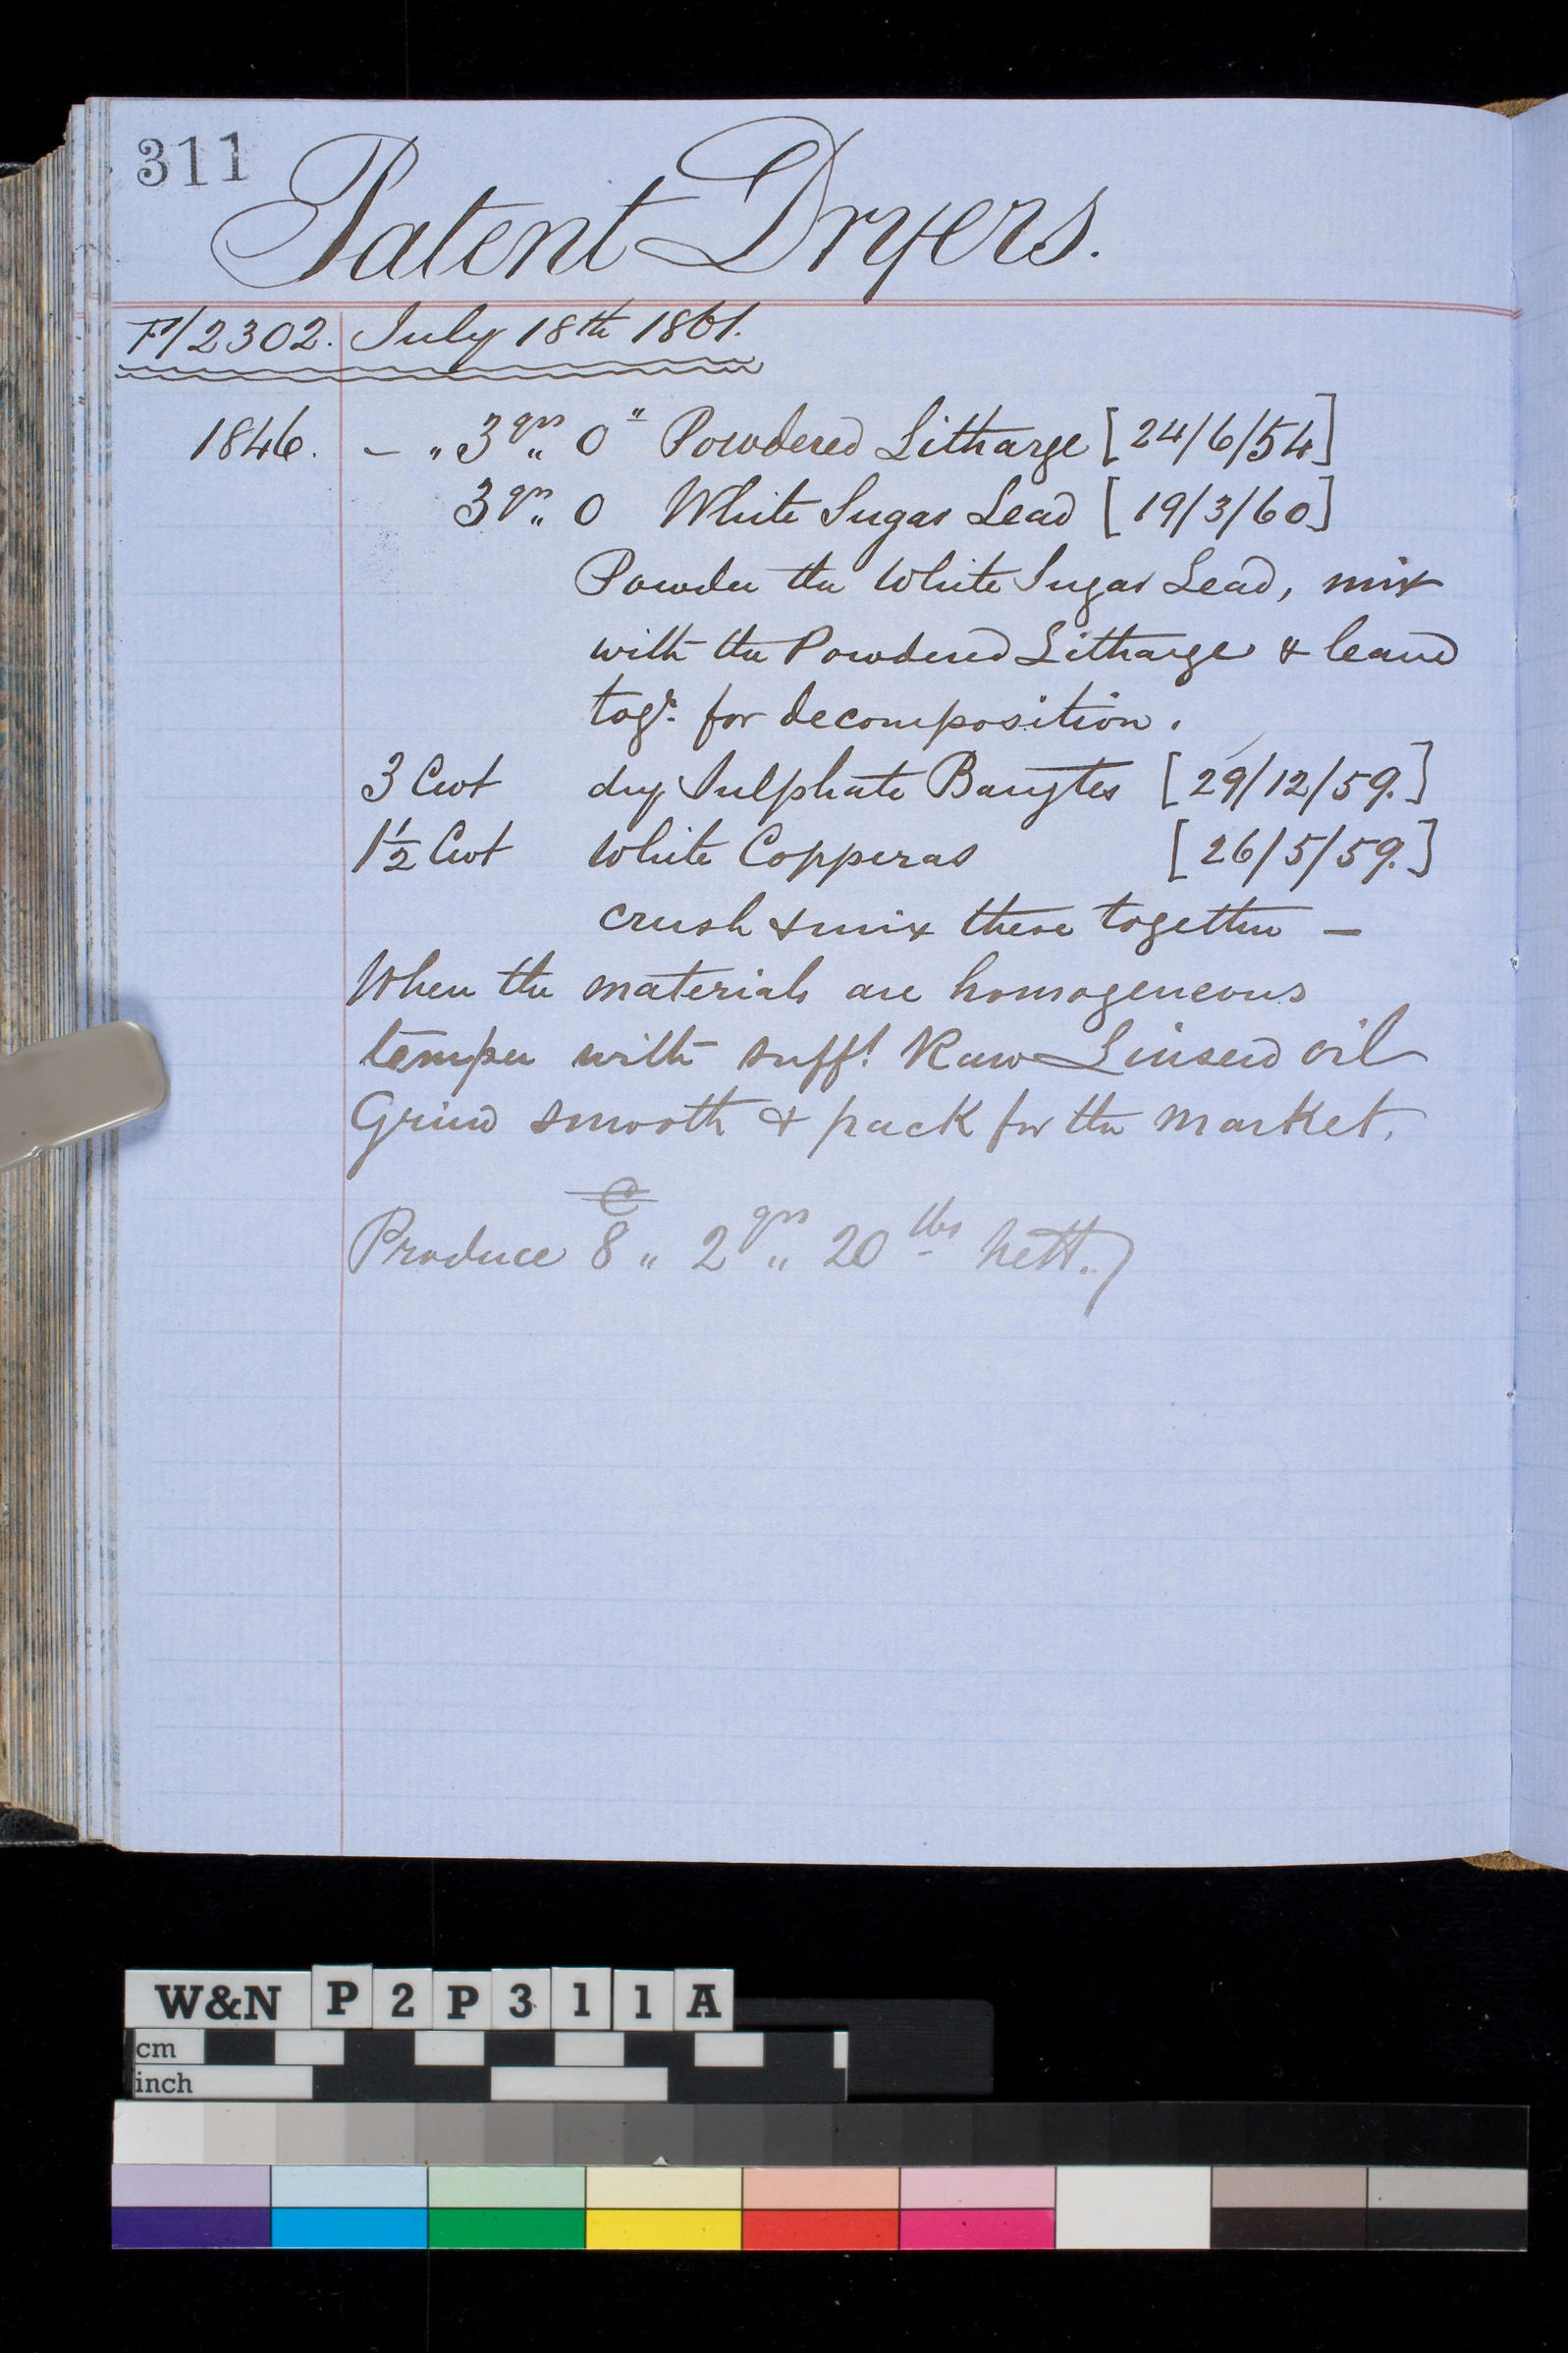 311
Patent Dryers.
P/2302. July 18th 1861.
1846. – " 3 qrs " 0 " Powdered Litharge [24/6/54]
3 qrs " 0 White Sugar Lead [19/3/60]
Powder the White Sugar Lead, mix
with the Powdered Litharge & leave
togr. for decomposition.
3 Cwt dry Sulphate Barytes [29/12/59.]
1½ Cwt White Copperas [26/5/59.]
crush & mix these together –
When the materials are homogeneous
temper with sufft. Raw Linseed oil
Grind smooth & pack for the market.
C
Produce 8 " 2 qrs " 20 lbs nett.
W&N P2P311A
cm
inch